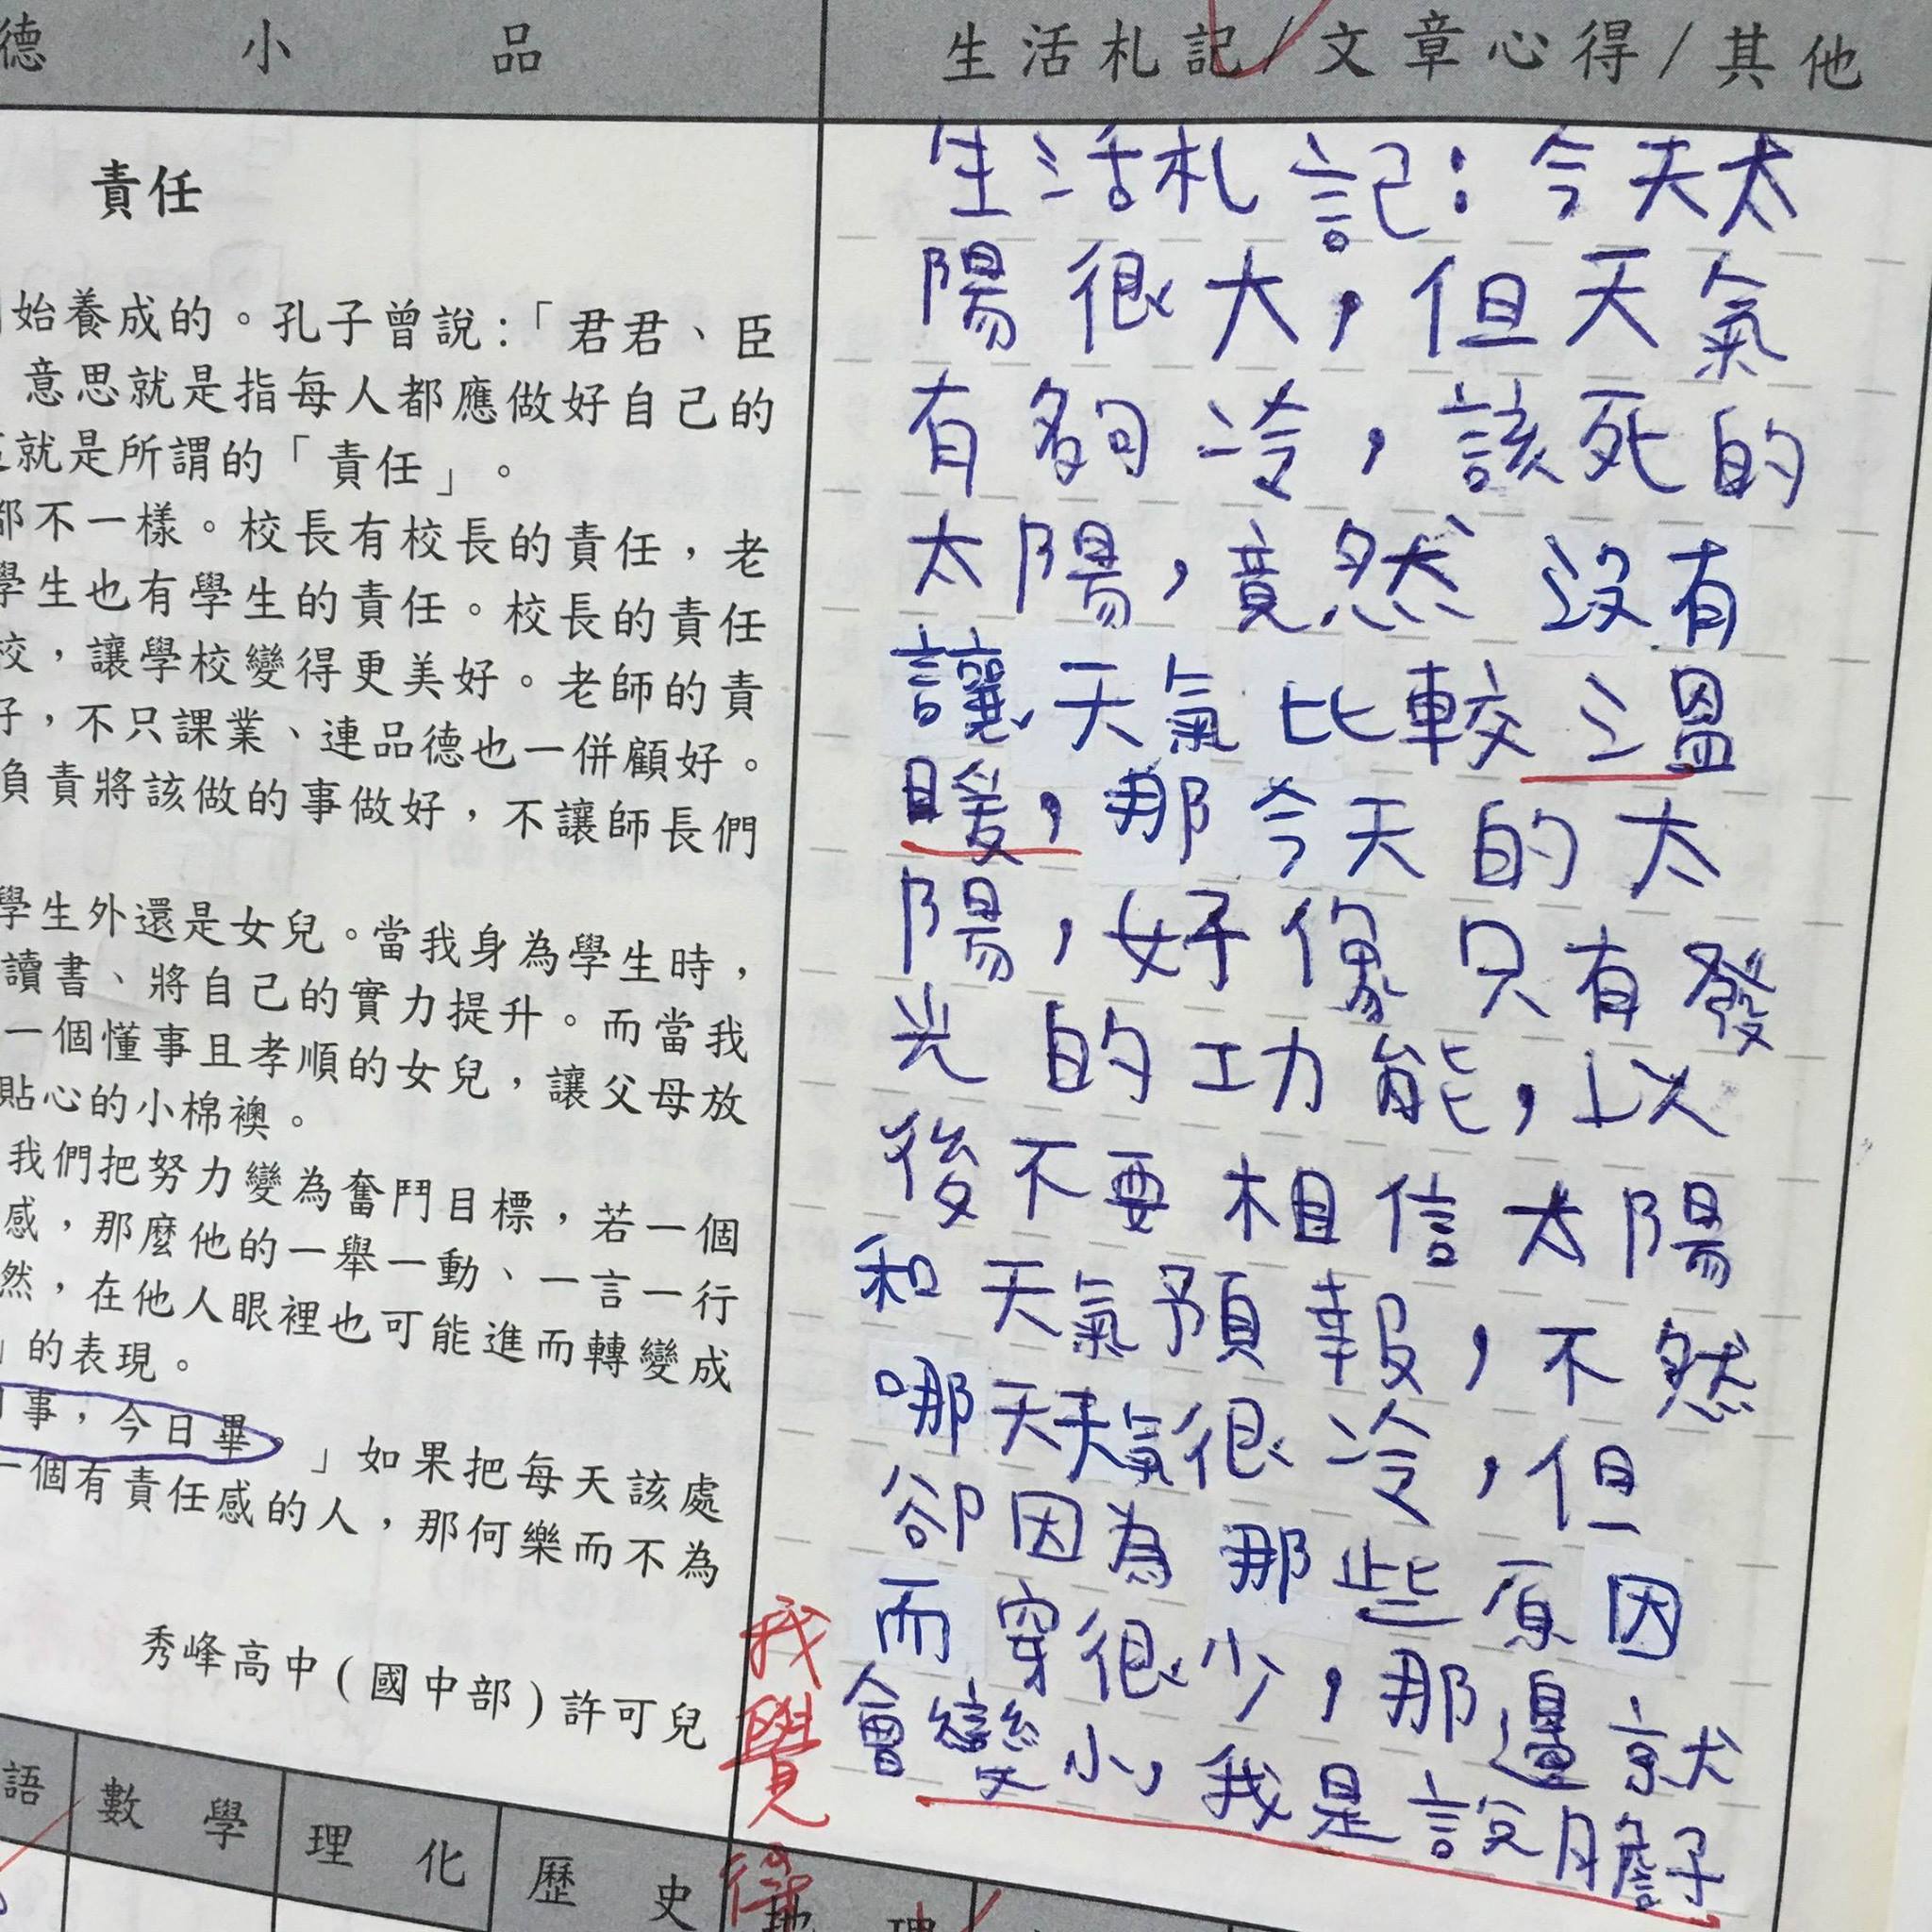 德小品
責任
始養成的。孔子曾說:「君君、臣
意思就是指每人都應做好自己的
就是所謂的「責任」。
都不一樣。校長有校長的責任，老
學生也有學生的責任。校長的責任
校，讓學校變得更美好。老師的責
好，不只課業、連品德也一併顧好。
負責將該做的事做好，不讓師長們
學生外還是女兒。當我身為學生時，
讀書、將自己的實力提升。而當我
一個懂事且孝順的女兒，讓父母放
貼心的小棉襖。
我們把努力變為奮鬥目標，若一個
感，那麼他的一舉一動、一言一行
然，在他人眼裡也可能進而轉變成
」的表現。
事，今日畢。」如果把每天該處
一個有責任感的人，那何樂而不為
秀峰高中(國中部)許可兒
語
數學
理化
歷史
地理
生活札記/文章心得/其他
生活札記：今天太
陽很大，但天氣
有夠冷，該死的
太陽，竟然沒有
讓天氣比較溫
暖，那今天的太
陽，好像只有發
光的功能，以
後不要相信太陽
和天氣預報，不然
哪天天氣很冷，但
卻因為那些原因
而穿很少，那邊就
會變小，我是說膽子
我覺得